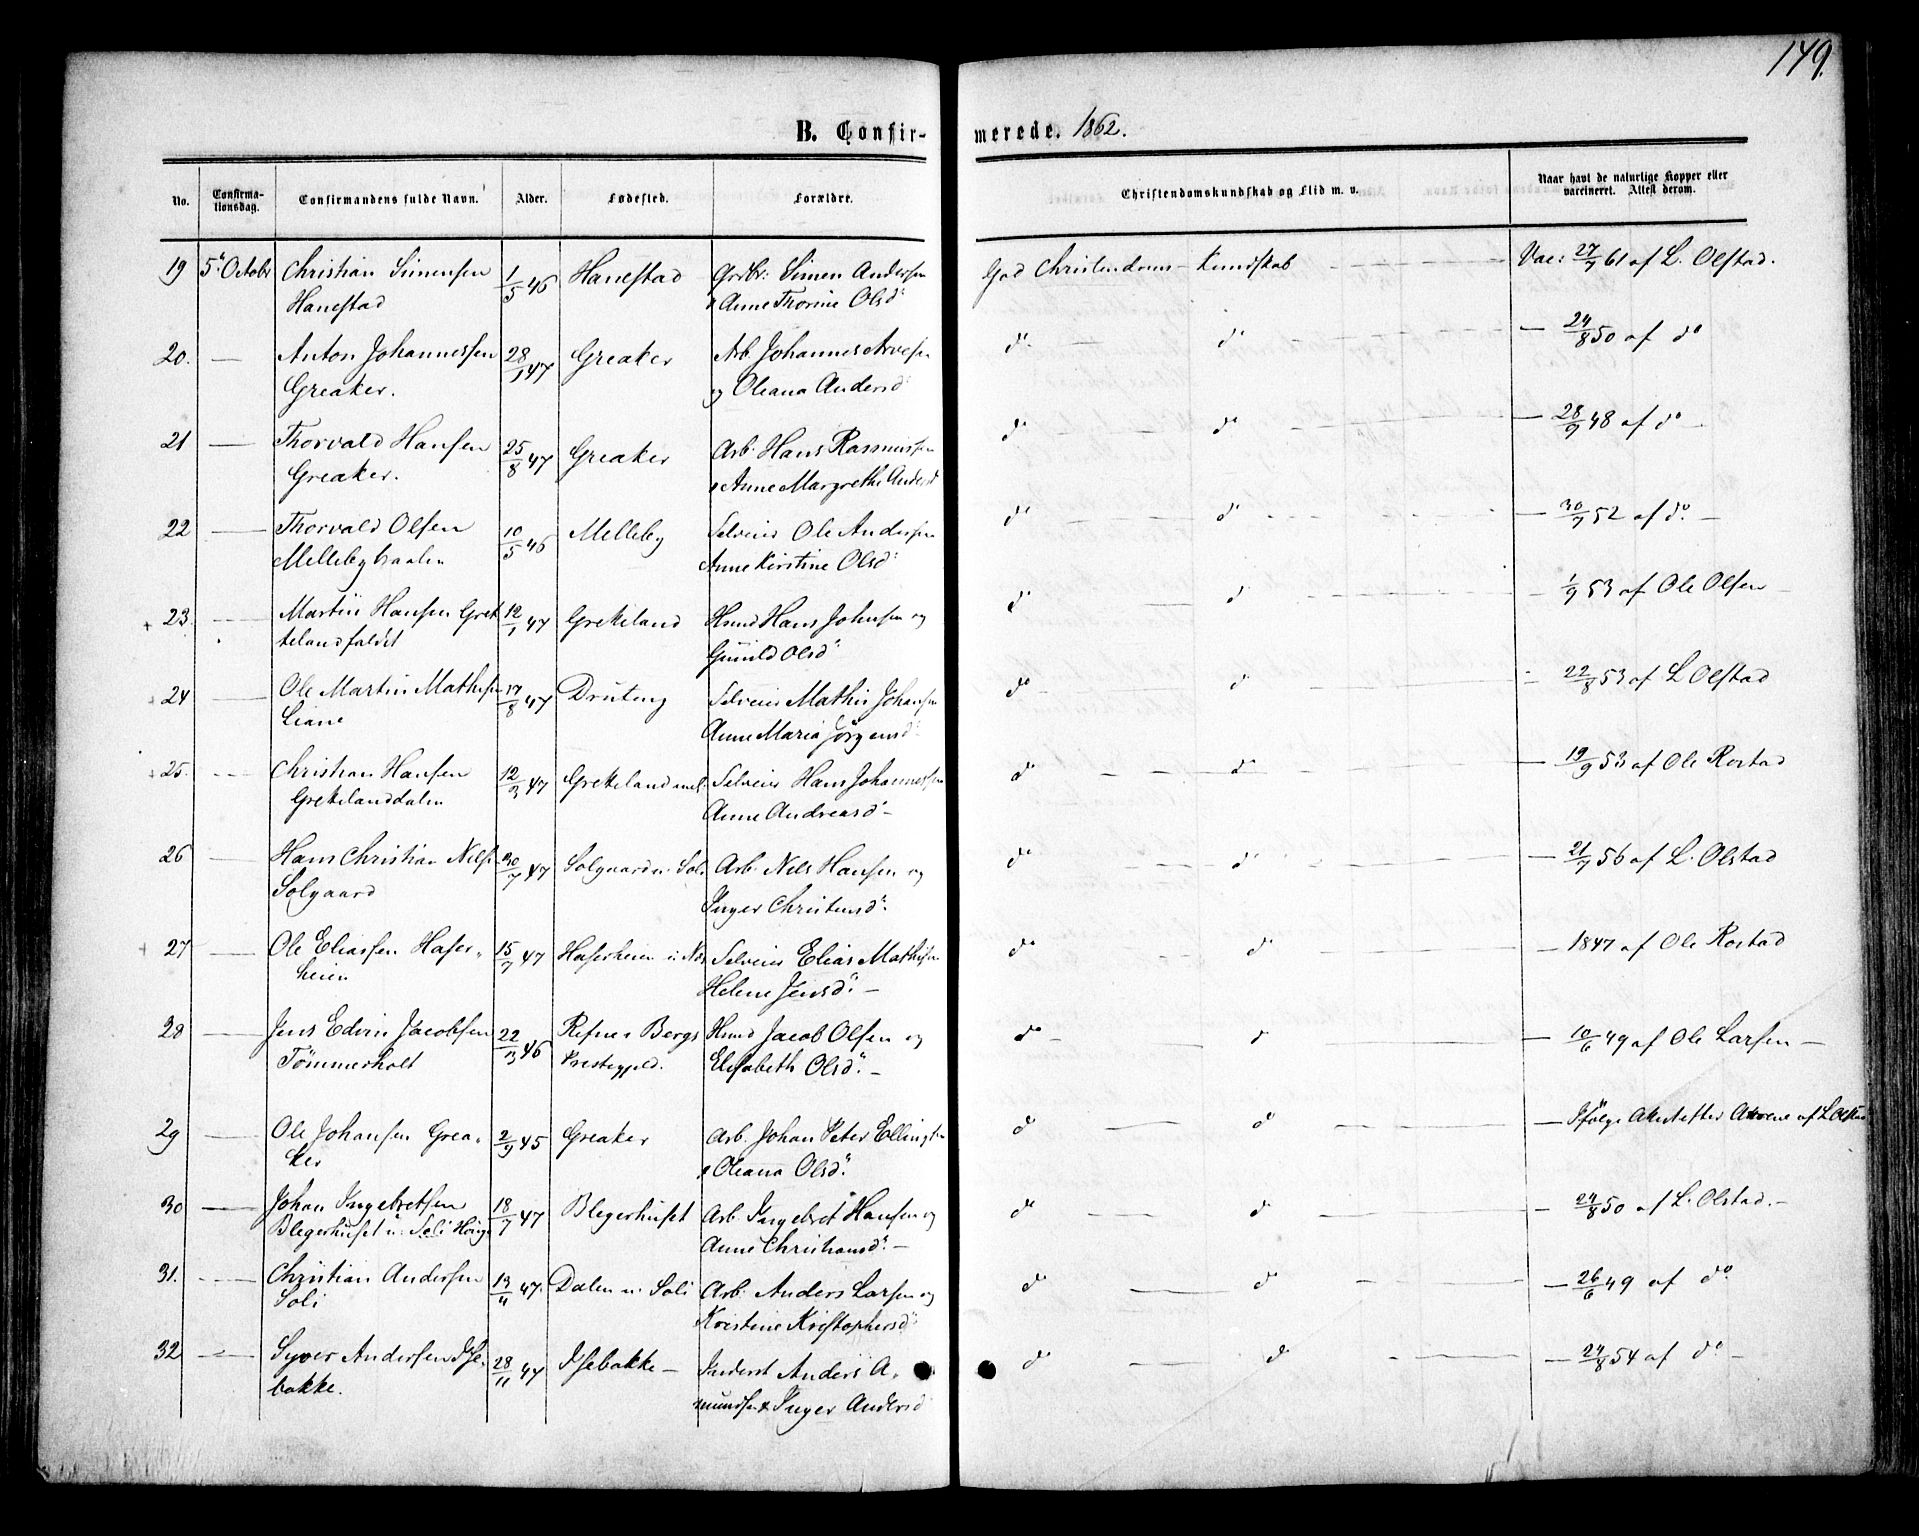 149.
B. Confirmerede. 1862.
No. Confirmationsdag. Confirmandens fulde Navn. Alder. Fødested. Forældre. Christendomskundskab og Flid m. v. Naar havt de naturlige Kopper eller vaccineret. Attest derom.
19 5. Octobr Christian Simensen 1/5 46 Hanestad Grdbr: Simen Andersen God Christendoms- Kundskab Vac: 27/7 61 af L. Olstad.
Hanestad & Anne Thorine Olsd:
20. — Anton Johannessen 28/1 47 Greaker Arb. Johannes Arvesen do do — 24/8 50 af do
Greaker. og Oleana Andersd:
21 — Thorvald Hansen 25/8 47 Greaker Arb. Hans Rasmussen do do — 28/9 48 af do —
Greaker. & Anne Margrethe Andersd
22 — Thorvald Olsen 10/5 46 Melleby Selveier Ole Andersen do do — 30/7 52 af do. —
Mellebybraaten Anne Kirstine Olsd:
23. — Martin Hansen Grek 12/1 47 Grekeland Husmd Hans Johnsen og do do — 1/9 53 af Ole Olsen —
kelandfaldet Gunild Olsd:
24 — Ole Martin Mathisen 17/8 47 Druteng Selveier Mathis Johansen do do — 22/8 53 af L Olstad
Liane Anne Maria Jørgensd:
25. — Christian Hansen 12/3 47 Grekeland Selveier Hans Johannessen do do — 19/9 53 af Ole Rostad
Grekelanddalen Anne Andreasd: —
26 — Hans Christian Nilsen 30/7 47 Solgaard u: Soli Arb. Nils Hansen og do do — 21/7 56 af L. Olstad
Solgaard Inger Christensd:
27 — Ole Eliassen Hafer- 15/7 47 Haferheien u: Selveier Elias Mathisen do do — 1847 af Ole Rostad
heien Helene Jensd: —
28 — Jens Edvin Jacobsen 22/3 46 Refne Bergs Husmd Jacob Olsen og do do — 10/6 49 af Ole Larsen —
Tömmerholt Prestegjeld. Elisabeth Olsd: —
29 — Ole Johansen Grea- 2/9 45 Greaker Arb. Johan Peter Ellingsen do do — Ifølge Attest af L Olstad
ker & Oleana Olsd:
30 — Johan Ingebretsen 18/7 47 Blegerhuset Arb. Ingebret Hansen og do do — 24/8 50 af L. Olstad. —
Blegerhuset u: Soli Anne Christiansd: —
31. — Christian Andersen 13/11 47. Dalen u: Soli Arb. Anders Larsen og do do — 26/6 49 af do.
Soli Kristine Kristophersd:
32 — Syver Andersen Ise- 28/11 47 Isebakke — Inderst Anders A- do do — 24/8 54 af do —
bakke. mundsen & Inger Andersd